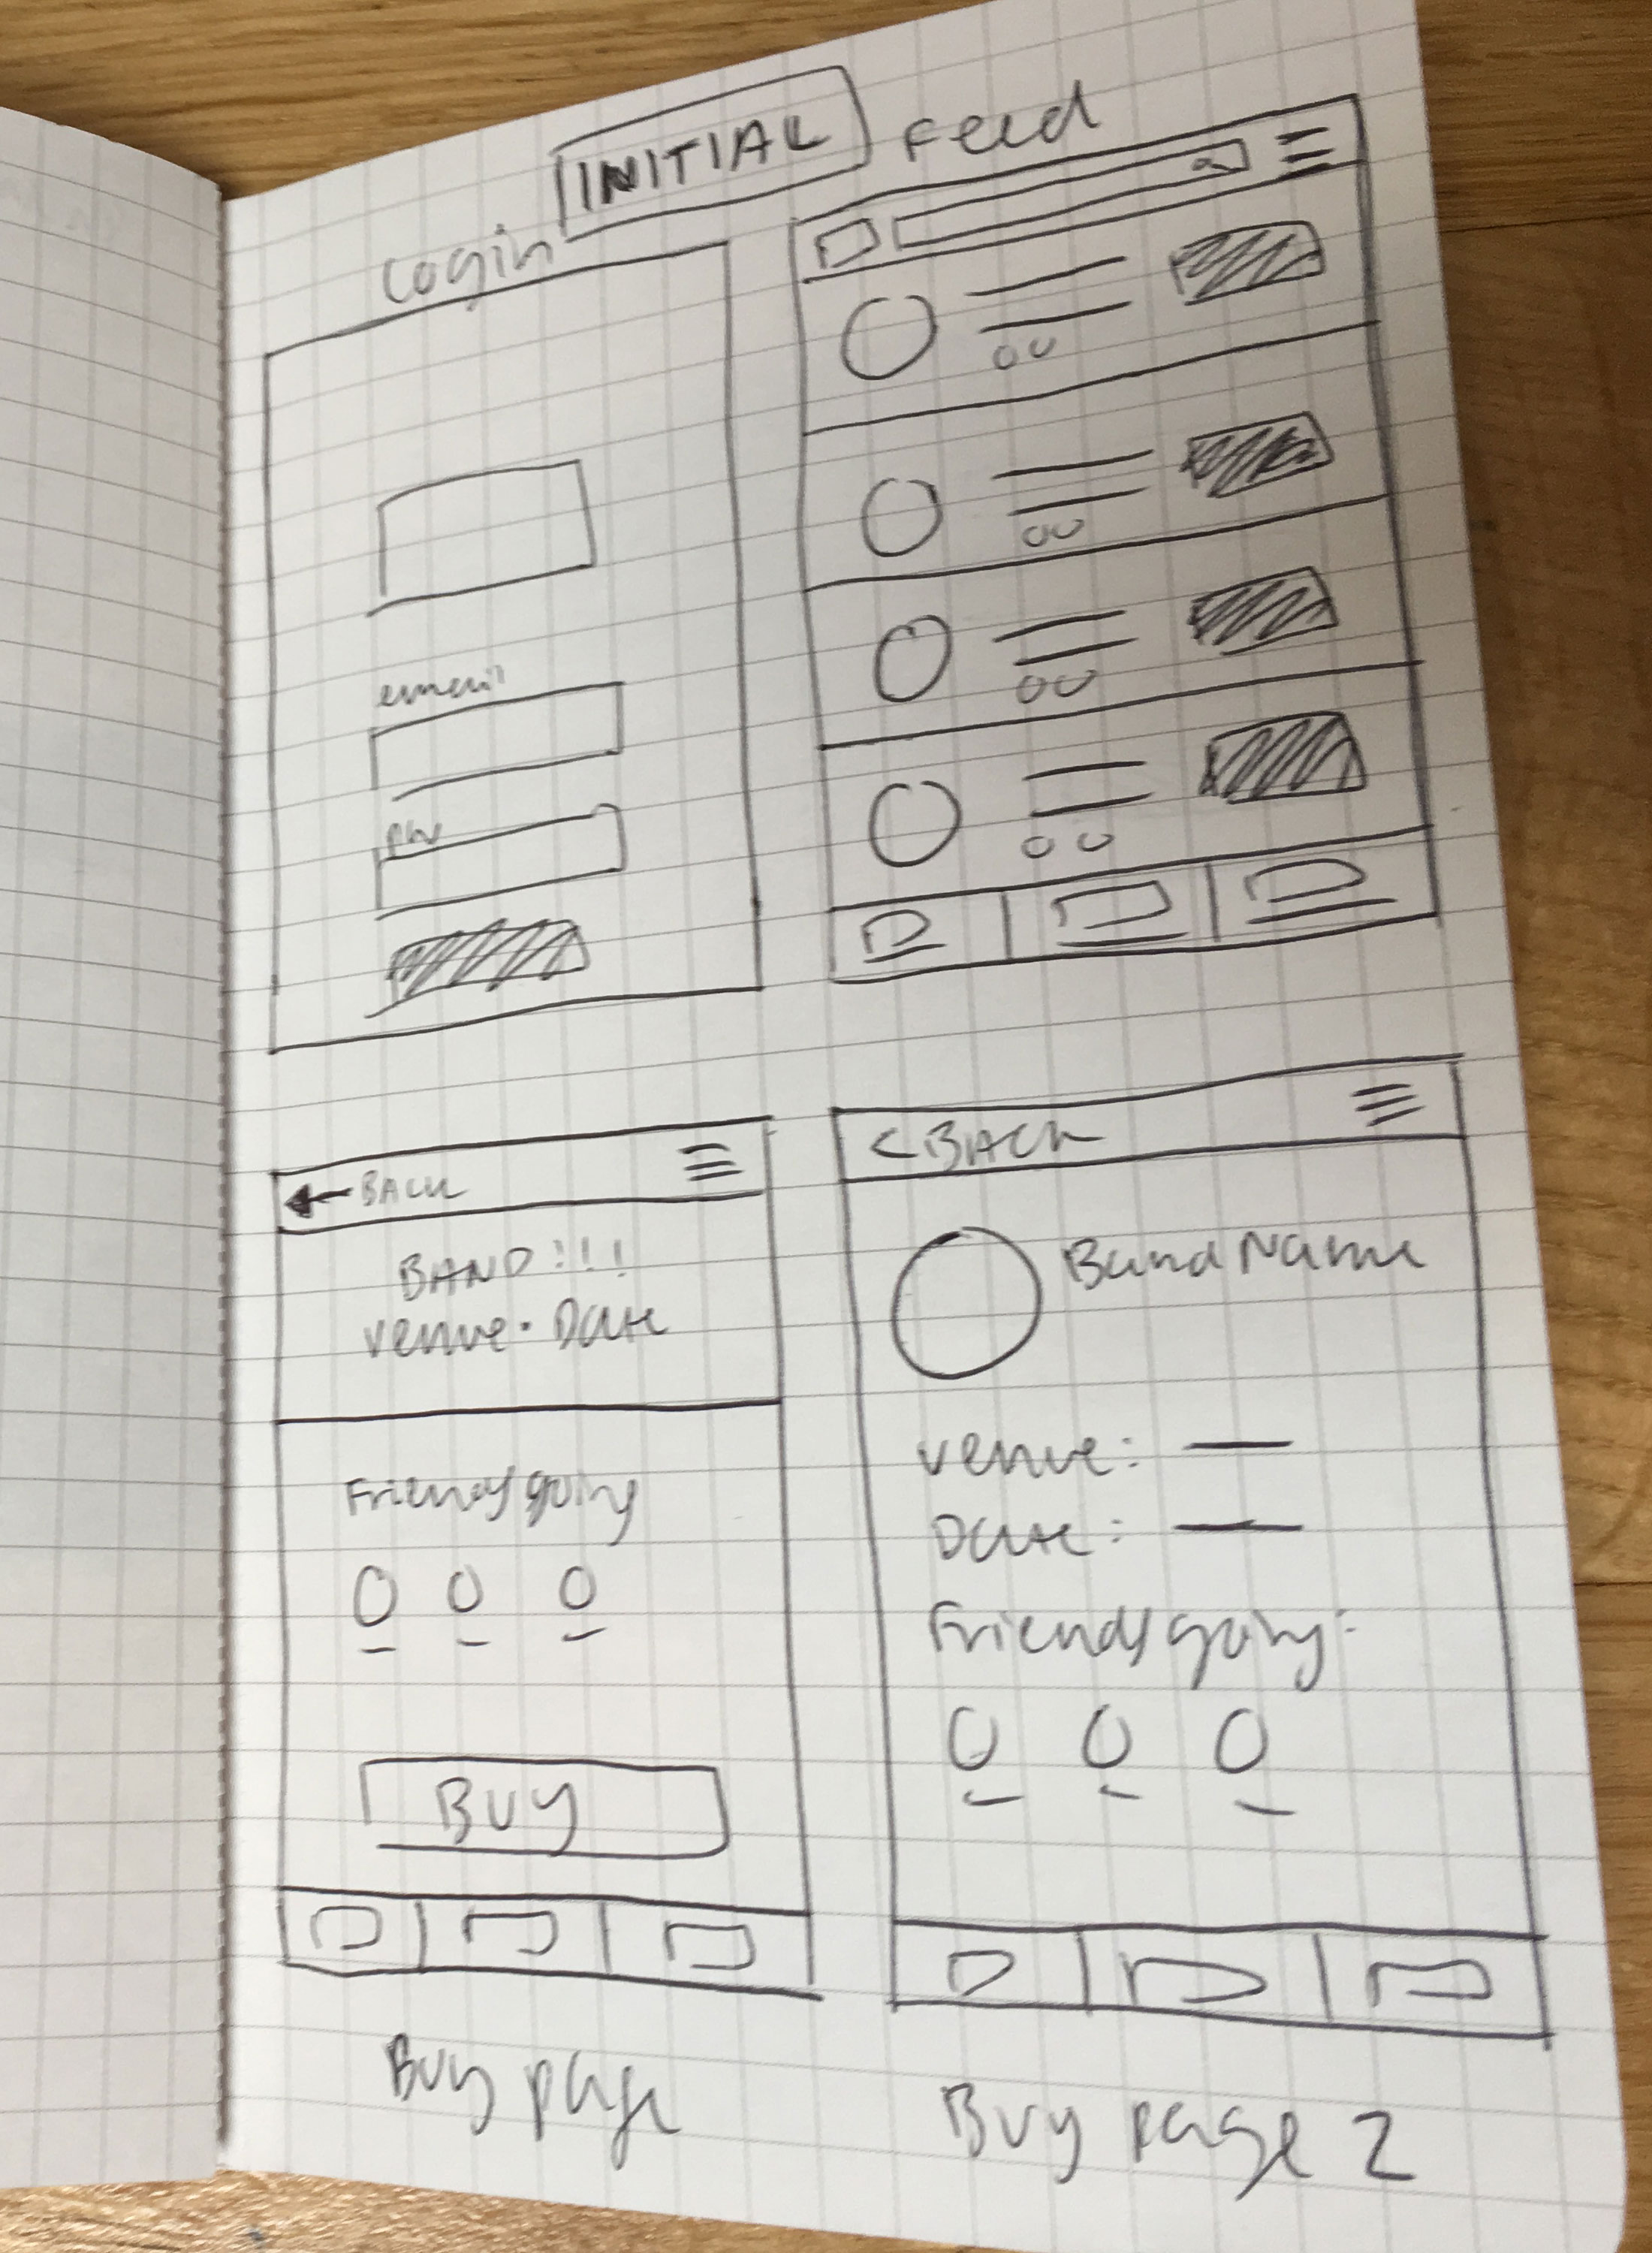 INITIAL
Login
Feed
email
pw
← BACK
BAND!!!
venue · Date
Friends going
BUY
Buy page
< BACK
Band Name
venue: —
Date: —
Friends going:
Buy page 2